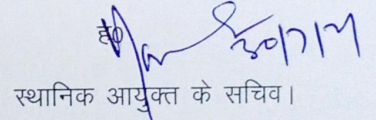 ह0 30/7/21
स्थानिक आयुक्त के सचिव।